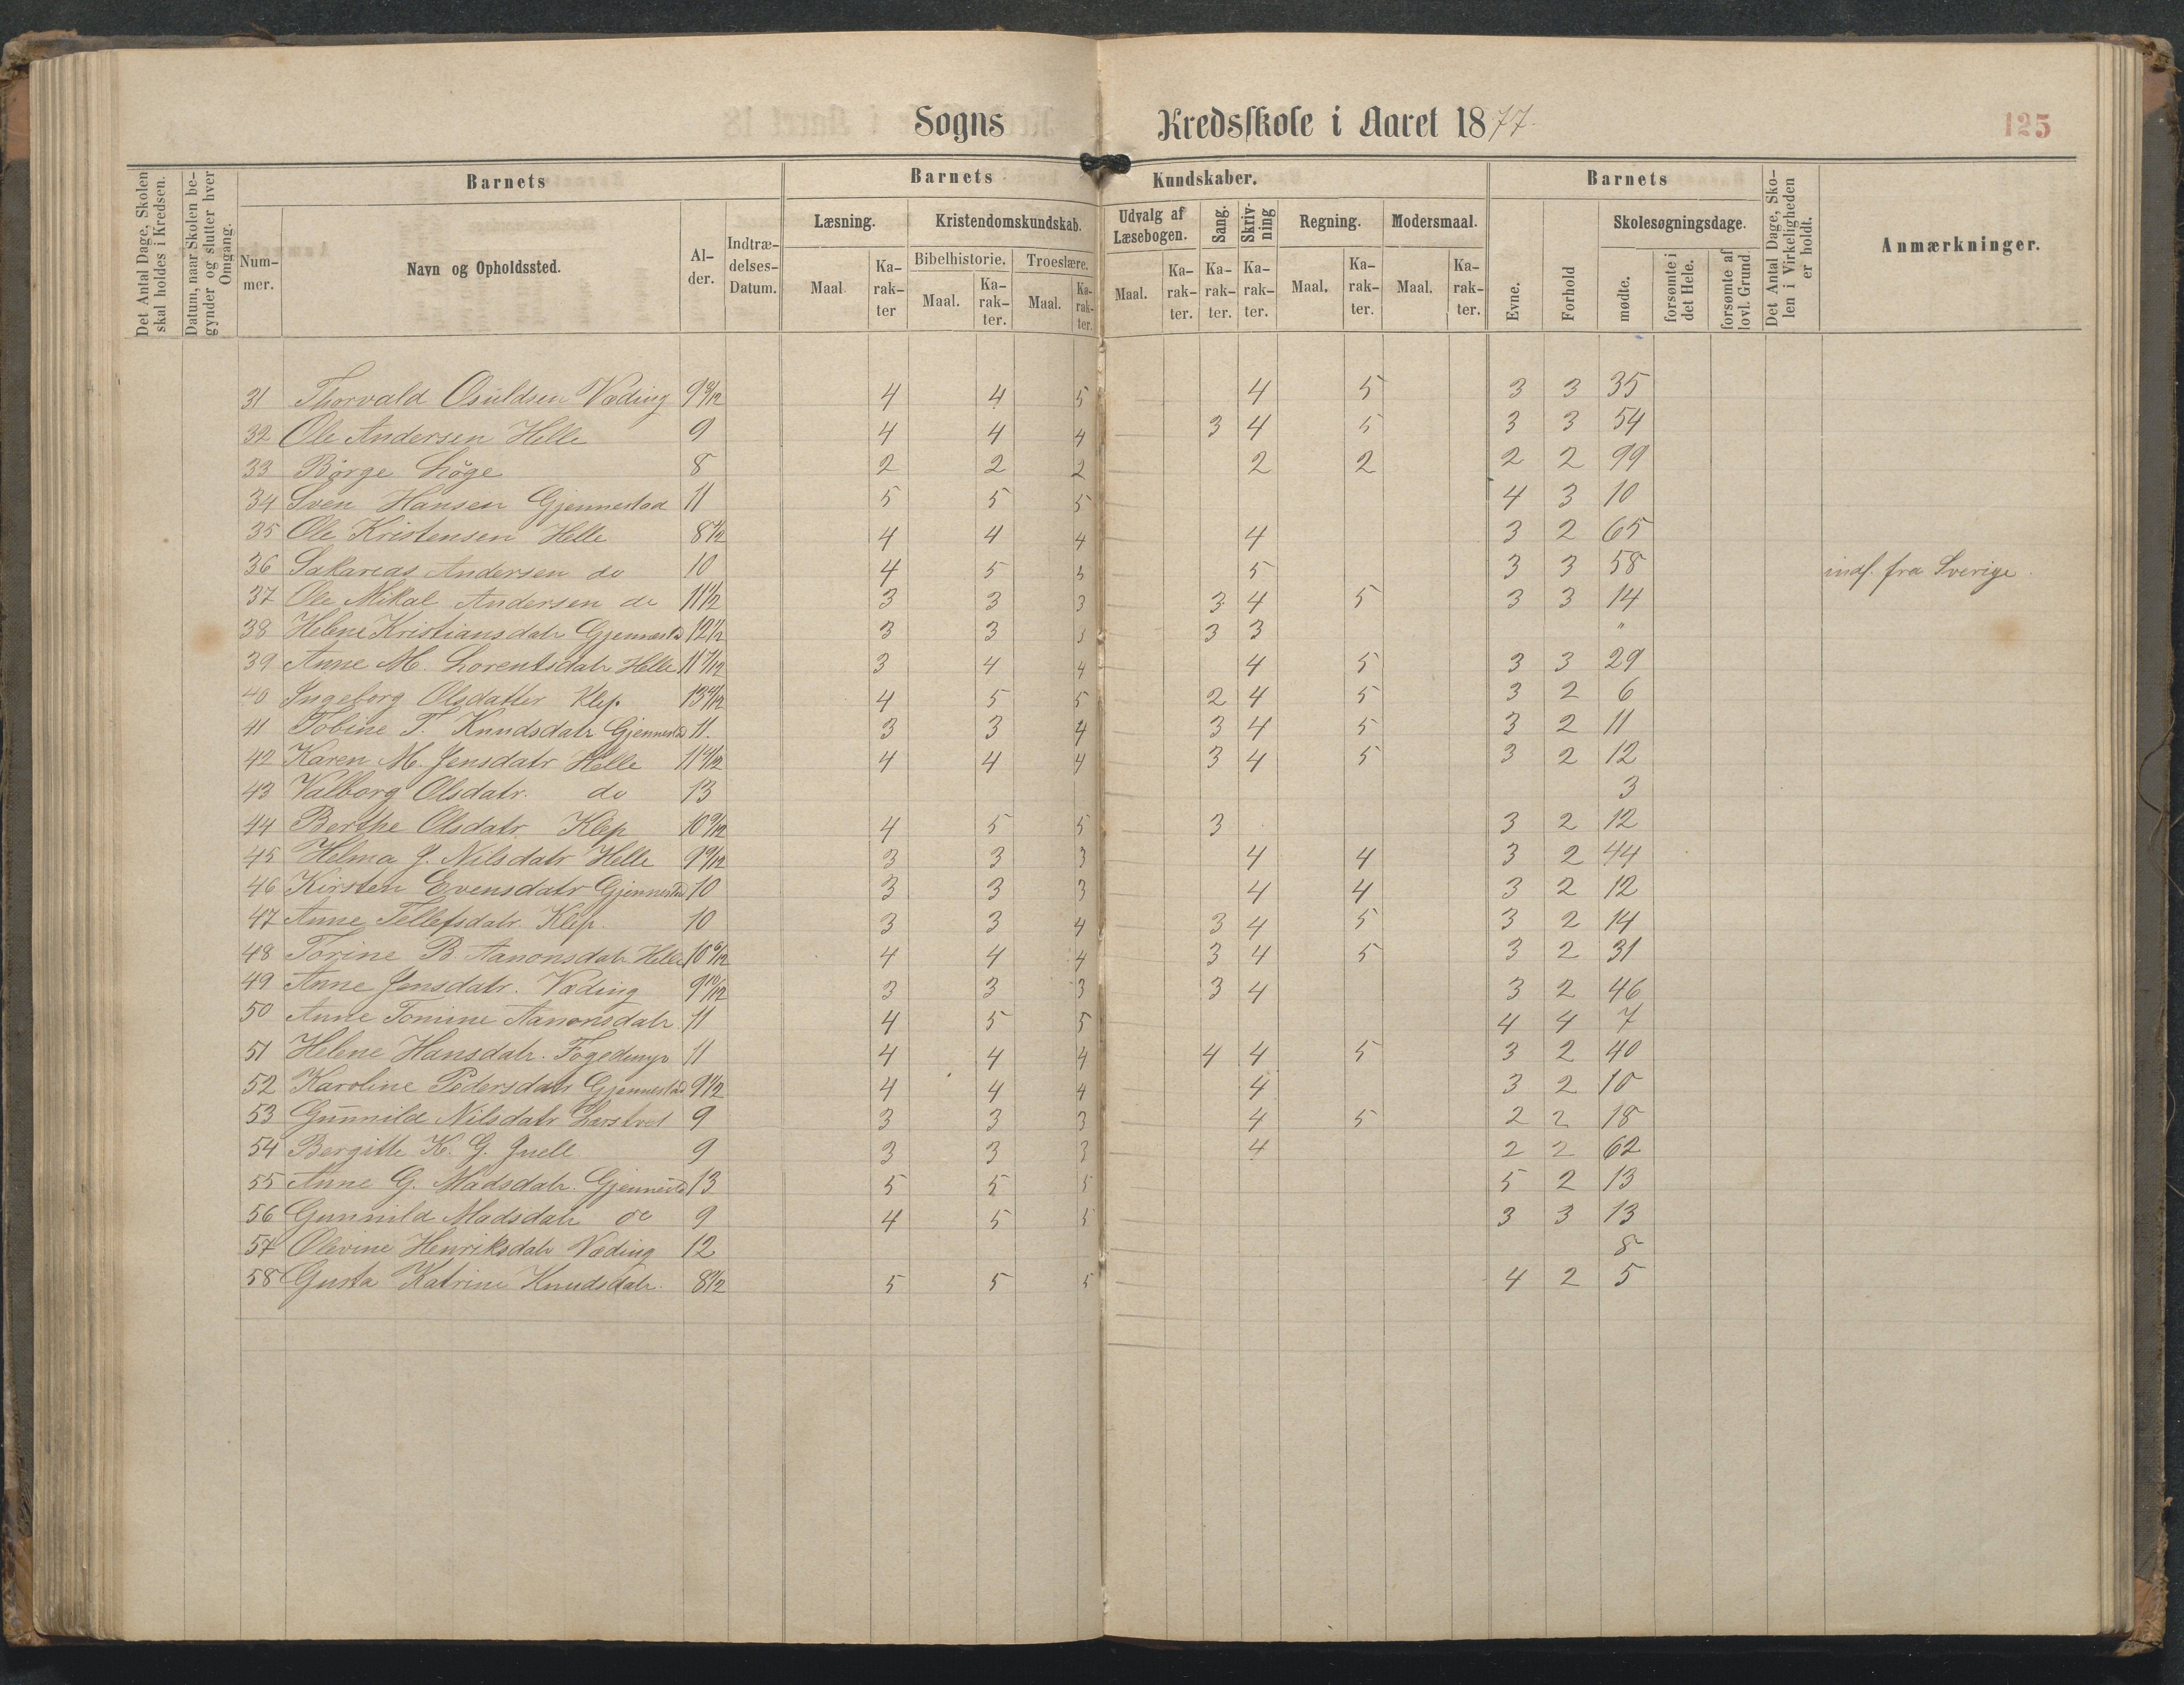 Sogns Kredsskole i Aaret 1877.
125
Det Antal Dage, Skolen skal holdes i Kredsen.
Datum, naar Skolen begynder og slutter hver Omgang.
Barnets
Nummer.
Navn og Opholdssted.
Alder.
Indtrædelses-Datum.
Barnets Kundskaber.
Læsning.
Maal
Karakter
Kristendomskundskab.
Bibelhistorie.
Maal.
Karakter.
Troeslære.
Maal.
Karakter.
Udvalg af Læsebogen.
Maal.
Karakter.
Sang.
Karakter.
Skrivning
Karakter.
Regning.
Maal.
Karakter.
Modersmaal.
Maal.
Karakter.
Barnets
Evne.
Forhold
Skolesøgningsdage.
mødte.
forsømte i det Hele.
forsømte af lovl. Grund.
Det Antal Dage, Skolen i Virkeligheden er holdt.
Anmærkninger.
31 Thorvald Osuldsen Væding 9 4 4 5 4 5 3 3 35
32 Ole Andersen Helle 9 4 4 4 3 4 5 3 3 54
33 Börge Löge 8 2 2 2 2 2 2 2 99
34 Sven Hansen Gjennestad 11 5 5 5 4 3 10
35 Ole Kristensen Helle 8 1/2 4 4 4 4 3 2 65
36 Sakarias Andersen do 10 4 5 5 5 3 3 58 indf. fra Sverige
37 Ole Mikal Andersen do 11 1/2 3 3 3 3 4 5 3 3 14
38 Helene Kristiansdatr Gjennestd 12 1/2 3 3 3 3 3 "
39 Anne M. Lorentsdatr Helle 11 7/12 3 4 4 4 5 3 3 29
40 Ingeborg Olsdatter Klep. 13 4 5 5 2 4 5 3 2 6
41 Tobine T. Knudsdatr Gjennestd 11. 3 3 4 3 4 5 3 2 11
42 Karen M. Jensdatr Helle 11 4 4 4 3 4 5 3 2 12
43 Valborg Olsdatr. do 13 3
44 Berthe Olsdatr Klep 10 9/12 4 5 5 3 3 2 12
45 Helma J. Nilsdatr Helle 9 3 3 3 4 4 3 2 44
46 Kirsten Evensdatr Gjennestad 10 3 3 3 4 4 3 2 12
47 Anne Tellefsdatr. Klep. 10 3 3 4 3 4 5 3 2 14
48 Torine B. Aanonsdatr Helle 10 4 4 4 3 4 5 3 2 31
49 Anne Jensdatr. Væding 9 10/12 3 3 3 3 4 3 2 46
50 Anne Tomine Aanonsdatr 11 4 5 5 4 4 7
51 Helene Hansdatr. Fogedmyr 11 4 4 4 4 4 5 3 2 40
52 Karoline Pedersdatr Gjennestad 9 1/2 4 4 4 4 3 2 10
53 Gunnild Nilsdatr Larstvet 9 3 3 3 4 5 2 2 18
54 Bergitte K. G. Juell 9 3 3 3 4 2 2 62
55 Anne G. Madsdatr. Gjennestd 13 5 5 5 5 2 13
56 Gunnild Madsdatr do 9 4 5 5 3 3 13
57 Olevine Henriksdatr Væding 12 8
58 Gusta Katrine Knudsdatr. 8 1/2 5 5 5 4 2 5